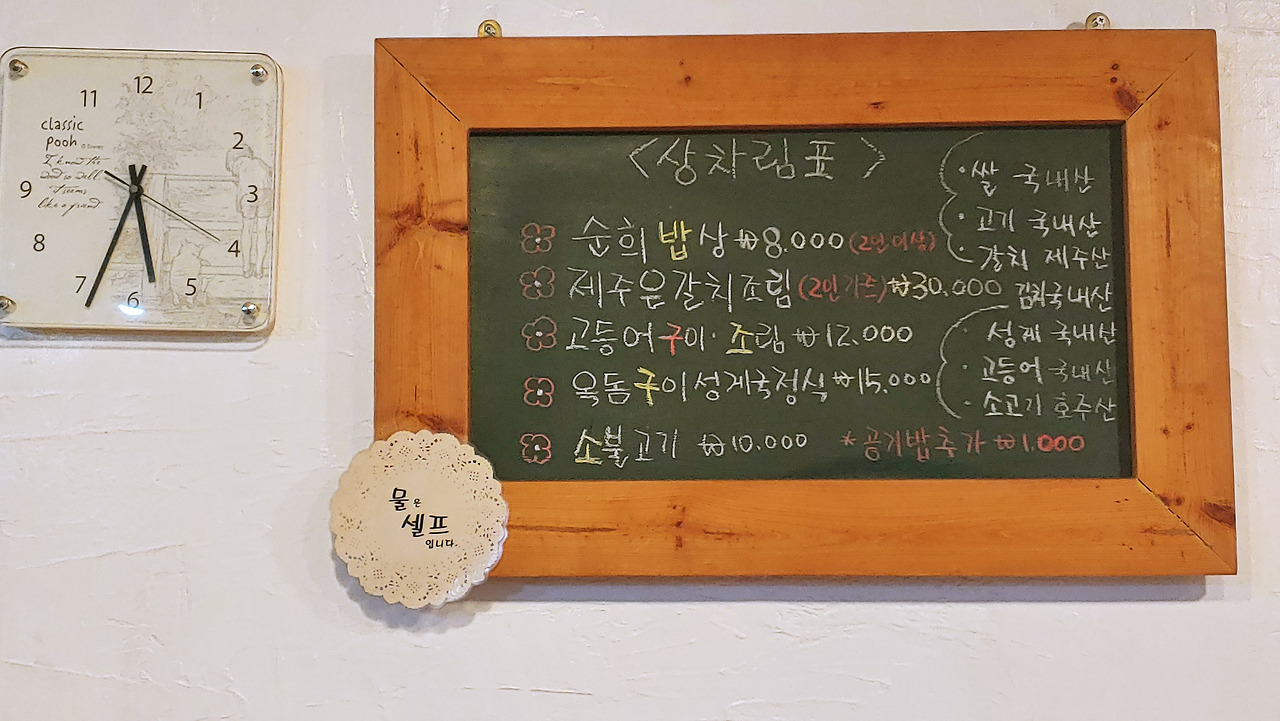 12
11 1
classic
pooh © Disney
2
I know the
9 3
like a friend
8 4
7 5
6
<상차림표>
순희밥상 ₩8.000 (2인이상)
제주은갈치조림 (2인기준) ₩30.000
고등어구이·조림 ₩12.000
옥돔구이성게국정식 ₩15.000
소불고기 ₩10.000 *공기밥추가 ₩1.000
·쌀 국내산
·고기 국내산
·갈치 제주산
김치국내산
성게 국내산
·고등어 국내산
·소고기 호주산
물은
셀프
입니다.